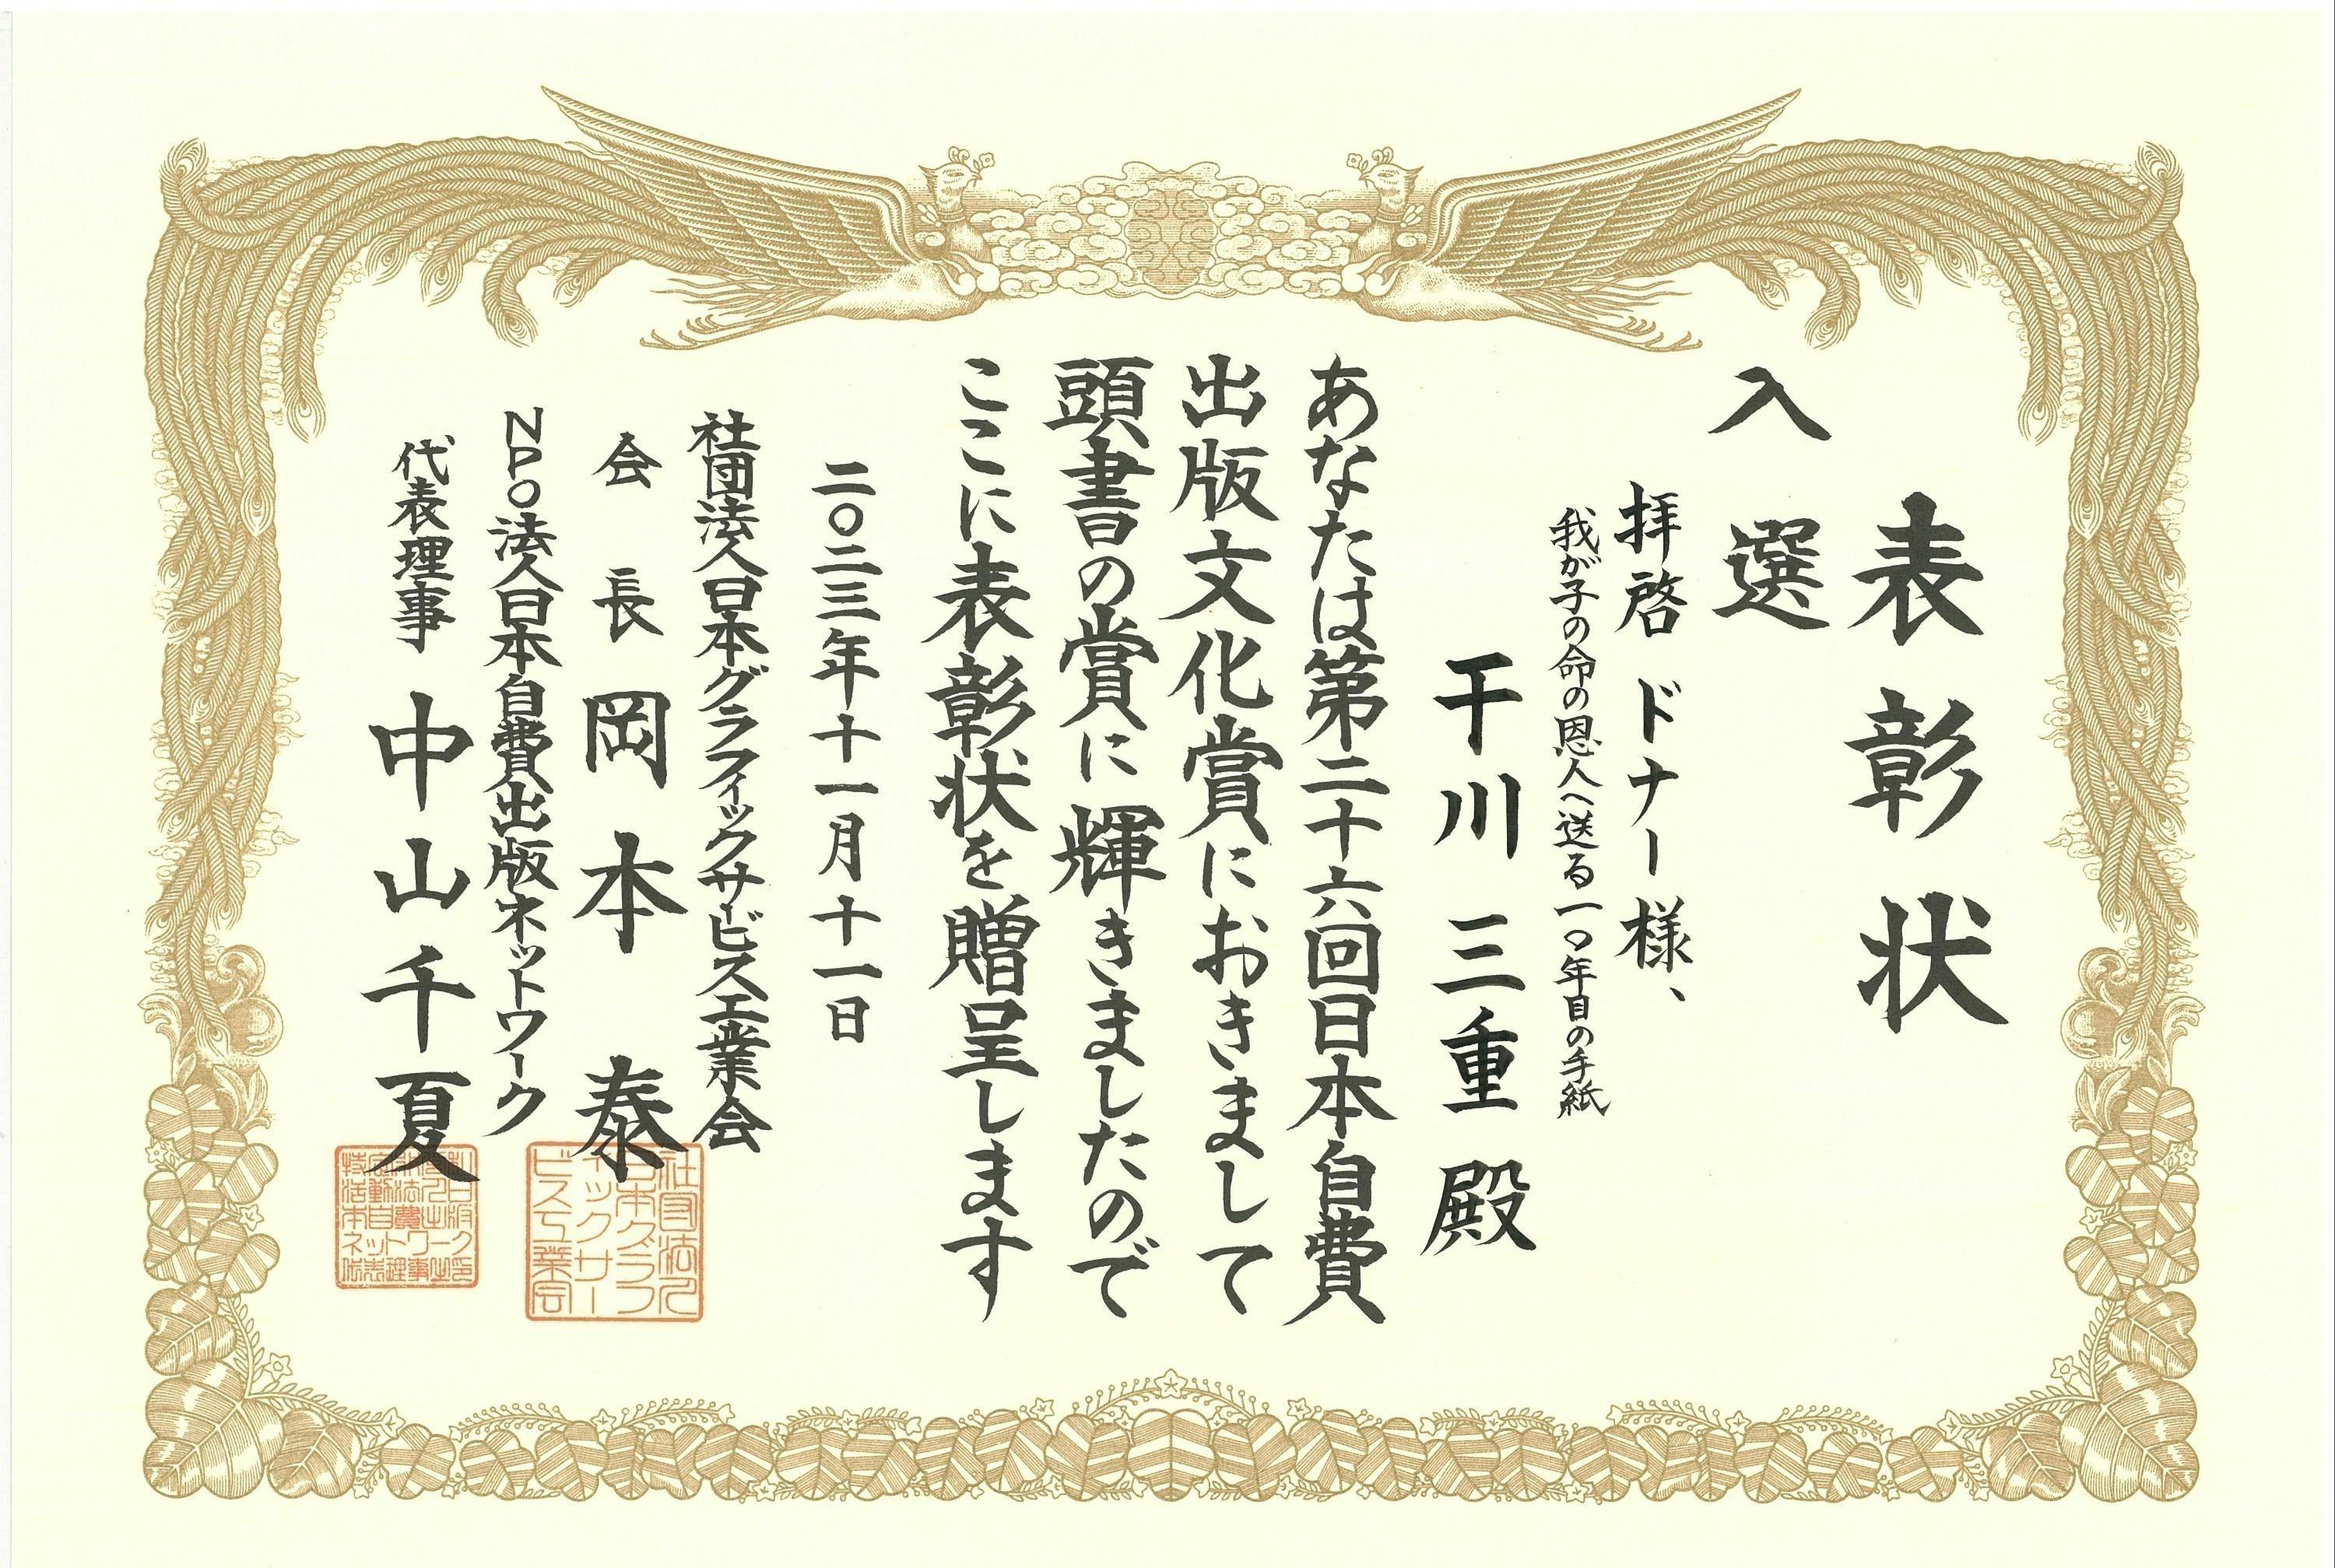 表彰状
入選
拝啓 ドナー様、
我が子の命の恩人へ送る一〇年目の手紙
干川 三重 殿
あなたは第二十六回日本自費
出版文化賞におきまして
頭書の賞に輝きましたので
ここに表彰状を贈呈します
二〇二三年十一月十一日
社団法人日本グラフィックサービス工業会
会長 岡本 泰
NPO法人日本自費出版ネットワーク
代表理事 中山千夏
社団法人
日本グラフ
ィックサー
ビス工業会